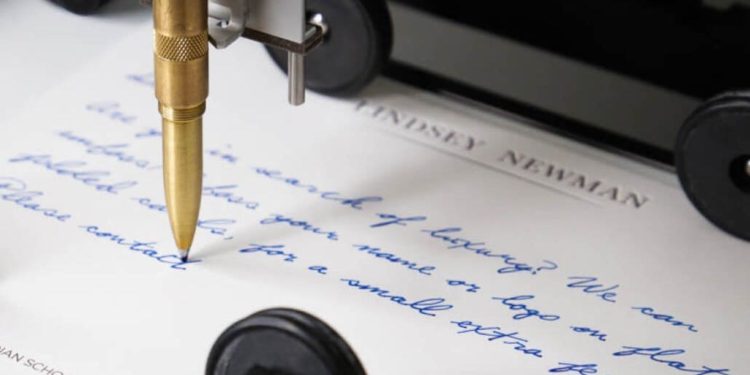 LINDSEY NEWMAN
Are in search of luxury? We can
your name or logo on flat
folded cards, for a small extra fe
Please contact
DIAN SCHO